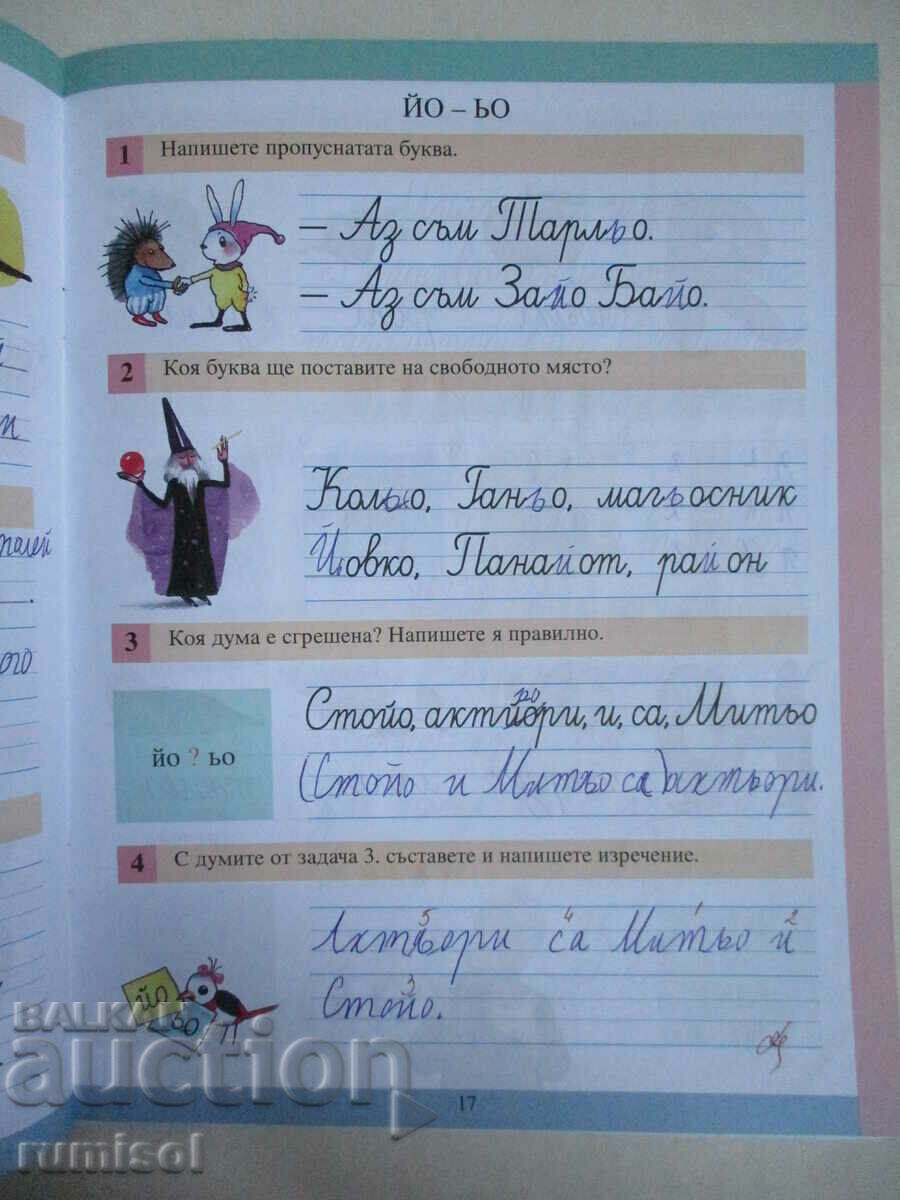 ЙО – ЬО
1 Напишете пропуснатата буква.
– Аз съм Тарльо.
– Аз съм Зайо Байо.
2 Коя буква ще поставите на свободното място?
Кольо, Ганьо, магьосник
Йовко, Панайот, район
3 Коя дума е сгрешена? Напишете я правилно.
йо ? ьо
Стойо, актйори, и, са, Митьо
(Стойо и Митьо са) актьори.
4 С думите от задача 3. съставете и напишете изречение.
5 4 1 2
Актьори са Митьо и
3
Стойо.
йо
ьо
17
BALKAN
auction
rumisol